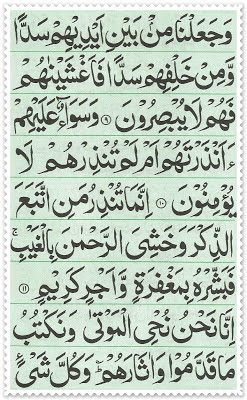 وَجَعَلْنَا مِنْۢ بَيْنِ اَيْدِيْهِمْ سَدًّا
وَّمِنْ خَلْفِهِمْ سَدًّا فَاَغْشَيْنٰهُمْ
فَهُمْ لَا يُبْصِرُوْنَ ۹ وَسَوَآءٌ عَلَيْهِمْ
ءَاَنْذَرْتَهُمْ اَمْ لَمْ تُنْذِرْهُمْ لَا
يُؤْمِنُوْنَ ۱۰ اِنَّمَا تُنْذِرُ مَنِ اتَّبَعَ
الذِّكْرَ وَخَشِيَ الرَّحْمٰنَ بِالْغَيْبِ ۚ
فَبَشِّرْهُ بِمَغْفِرَةٍ وَّاَجْرٍ كَرِيْمٍ ۱۱
اِنَّا نَحْنُ نُحْيِ الْمَوْتٰى وَنَكْتُبُ
مَا قَدَّمُوْا وَاٰثَارَهُمْ ؕ وَكُلَّ شَيْءٍ